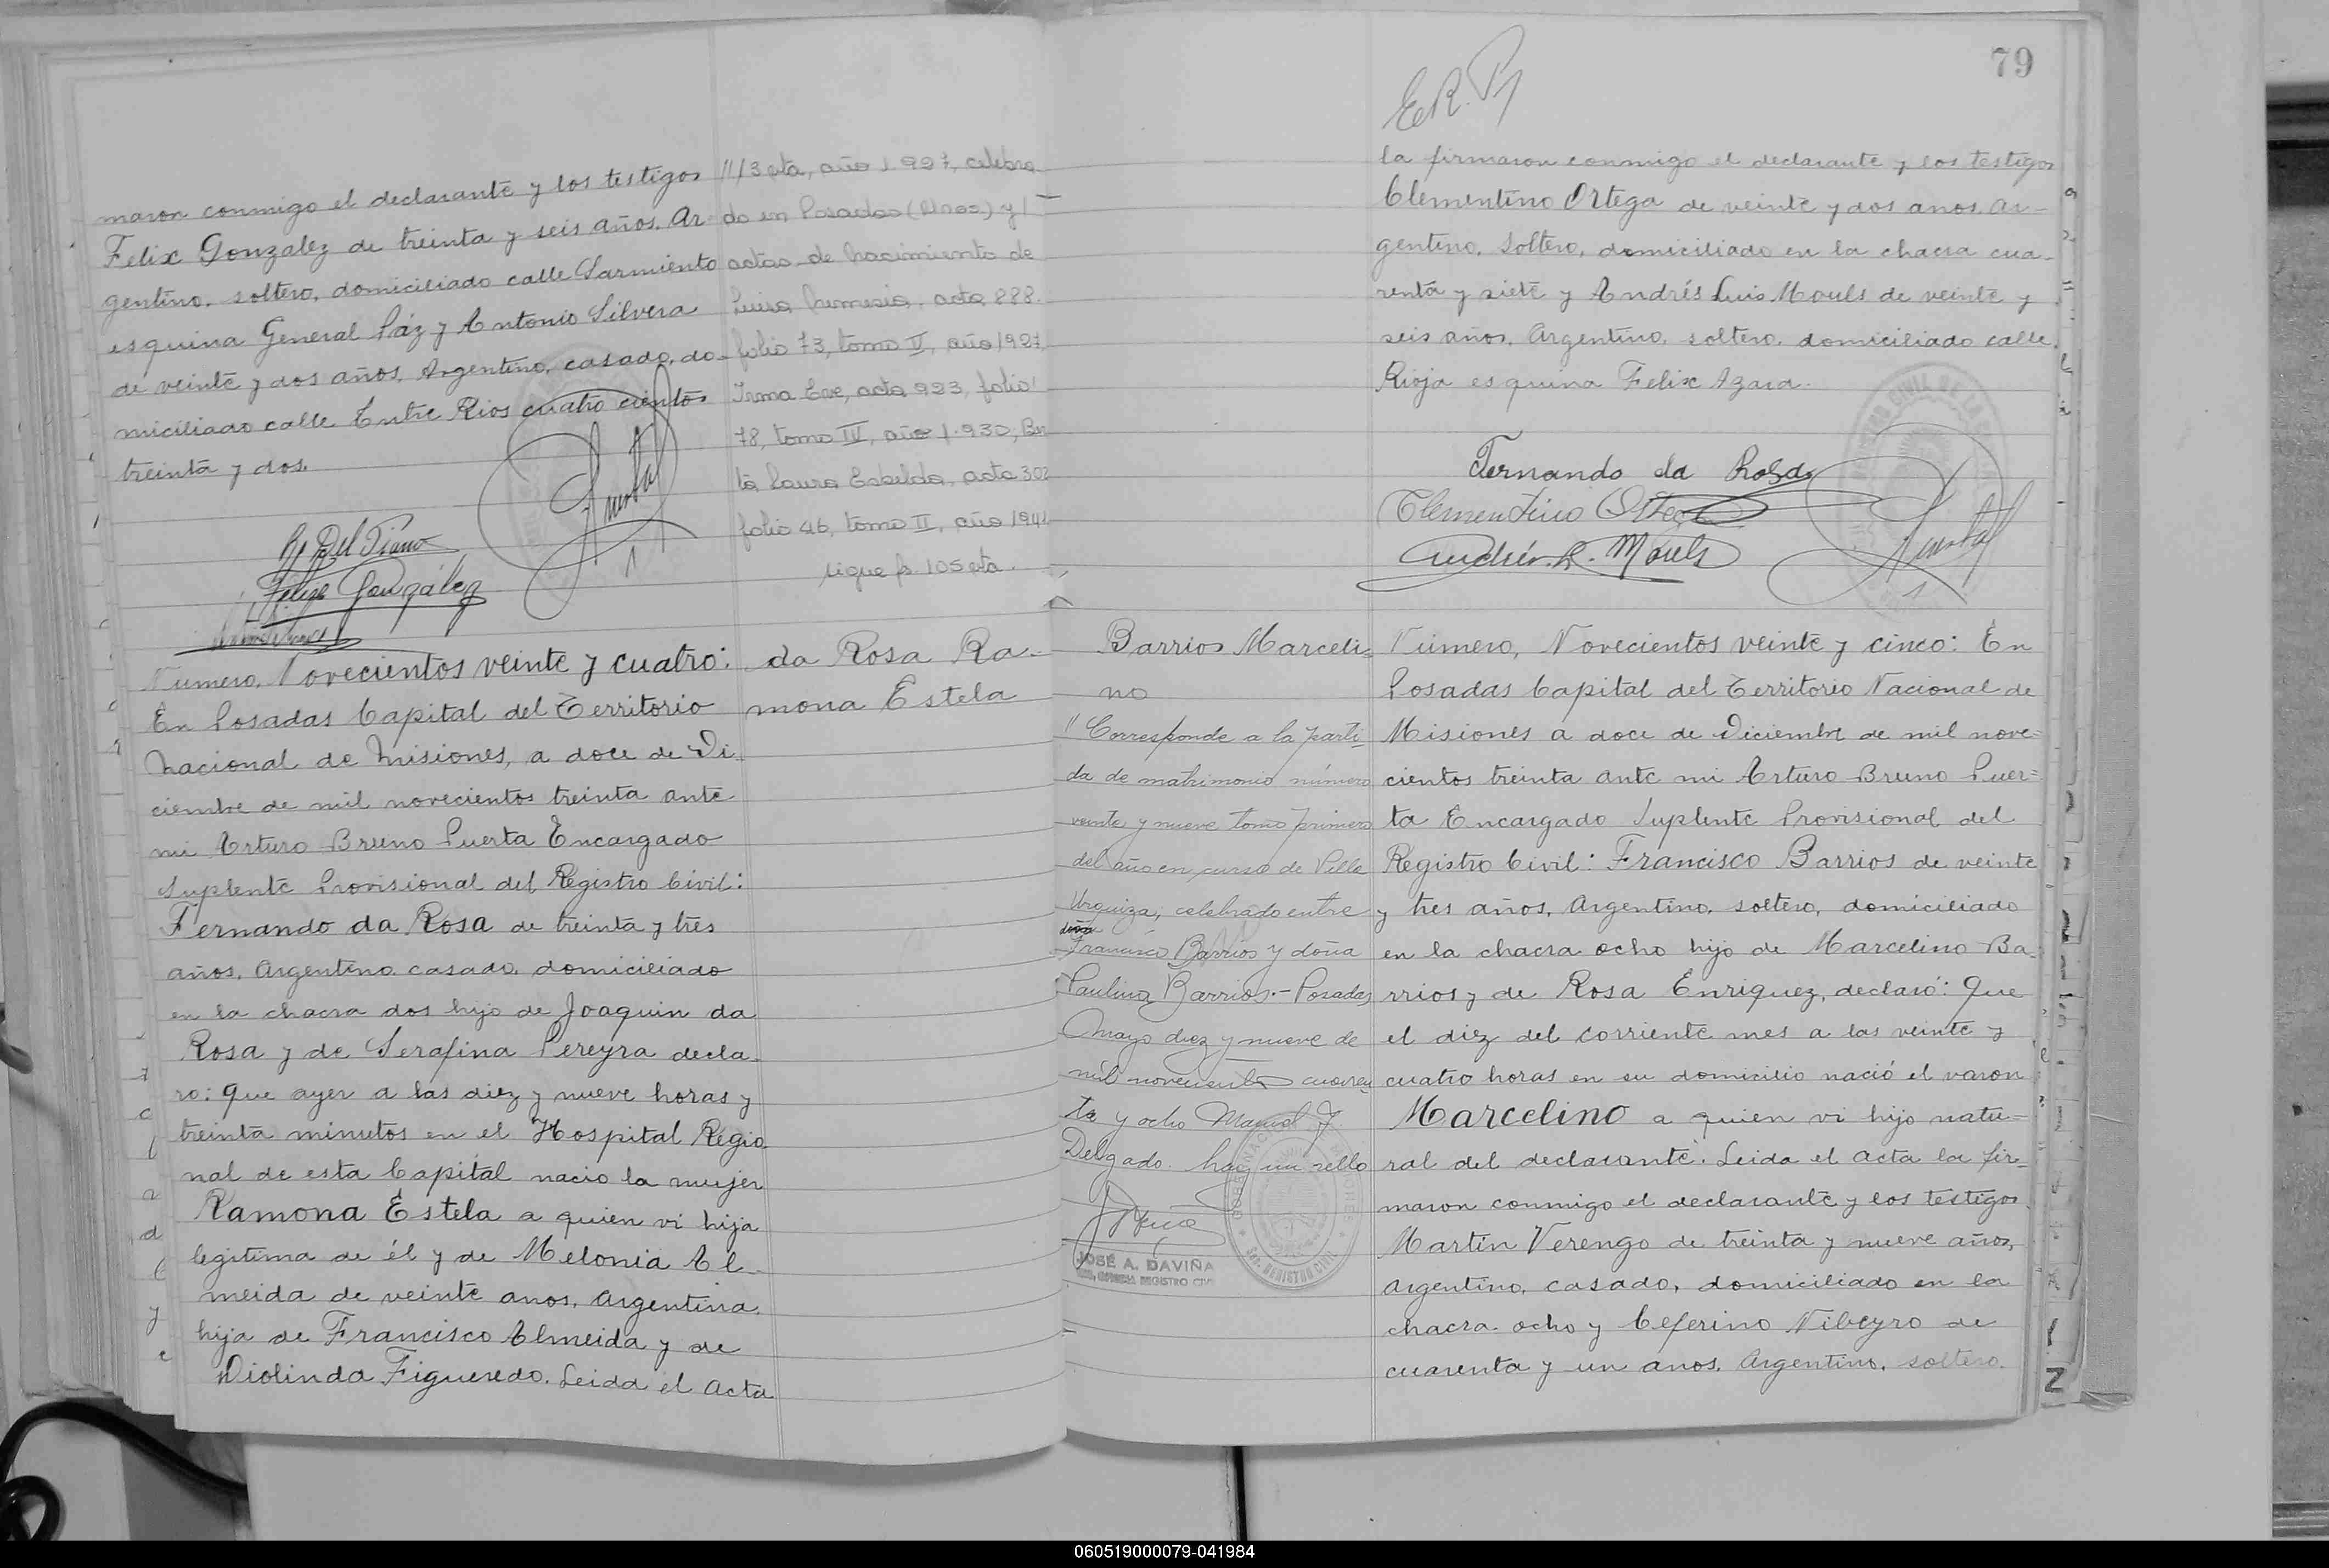 maron conmigo el declarante y los testigos
Felix Gonzalez de treinta y seis años. Ar-
gentino. soltero, domiciliado calle Sarmiento
esquina General Páz y Antonio Silvera
de veinte y dos años. Argentino, casado, do-
miciliado calle Entre Rios cuatro cientos
treinta y dos.
Felix González
//13 vta, año 1.927, celebra-
do en Posadas (Mnes.) y
actas de nacimiento de
Luisa acta 888.
folio 73, tomo II, año 1927,
Irma Eve, acta 923, folio
78, tomo IV, año 1.930, Ber
ta Laura acta 302
folio 46, tomo II, año 194
sigue fs. 105 vta.
Número, Novecientos veinte y cuatro:
En Posadas Capital del Territorio
Nacional de Misiones, a doce de Di-
ciembre de mil novecientos treinta ante
mi Arturo Bruno Puerta Encargado
Suplente Provisional del Registro Civil:
Fernando da Rosa de treinta y tres
años, Argentino. casado. domiciliado
en la chacra dos hijo de Joaquin da
Rosa y de Serafina Pereyra decla-
ro: Que ayer a las diez y nueve horas y
treinta minutos en el Hospital Regio-
nal de esta Capital nacio la mujer
Ramona Estela a quien vi hija
legitima de él y de Melonia Al-
meida de veinte anos, Argentina,
hija de Francisco Almeida y de
Diolinda Figueredo. Leida el Acta
da Rosa Ra-
mona Estela
79
E.R.P.
la firmaron conmigo el declarante y los testigos
Clementino Ortega de veinte y dos anos. Ar-
gentino. Soltero, domiciliado en la chacra cua-
renta y siete y Andrés Luis Mouls de veinte y
seis años. Argentino. soltero. domiciliado calle.
Rioja esquina Felix Azara.
Fernando da Rosa
Clementino Ortega
Andrés L. Mouls
Barrios Marceli-
no
// Corresponde a la parti-
da de matrimonio número
veinte y nueve tomo primero
del año en curso de Villa
Urquiza, celebrado entre
Francisco Barrios y doña
Paulina Barrios.- Posadas
mayo diez y nueve de
mil novecientos cuaren
ta y ocho Manuel J.
Delgado. hay un sello
JOSÉ A. DAVIÑA
REGISTRO CIVIL
Número, Novecientos veinte y cinco: En
Posadas Capital del Territorio Nacional de
Misiones a doce de Diciembre de mil nove=
cientos treinta ante mi Arturo Bruno Puer=
ta Encargado Suplente Provisional del
Registro Civil: Francisco Barrios de veinte
y tres años, Argentino. soltero, domiciliado
en la chacra ocho hijo de Marcelino Ba-
rrios y de Rosa Enriquez, declaró: Que
el diez del corriente mes a las veinte y
cuatro horas en su domicilio nació el varon
Marcelino a quien vi hijo natu=
ral del declarante. Leida el acta la fir-
maron conmigo el declarante y los testigos
Martin Verengo de treinta y nueve años,
argentino, casado, domiciliado en la
chacra ocho y Ceferino Nibeyro de
cuarenta y un anos. Argentino, soltero.
060519000079-041984